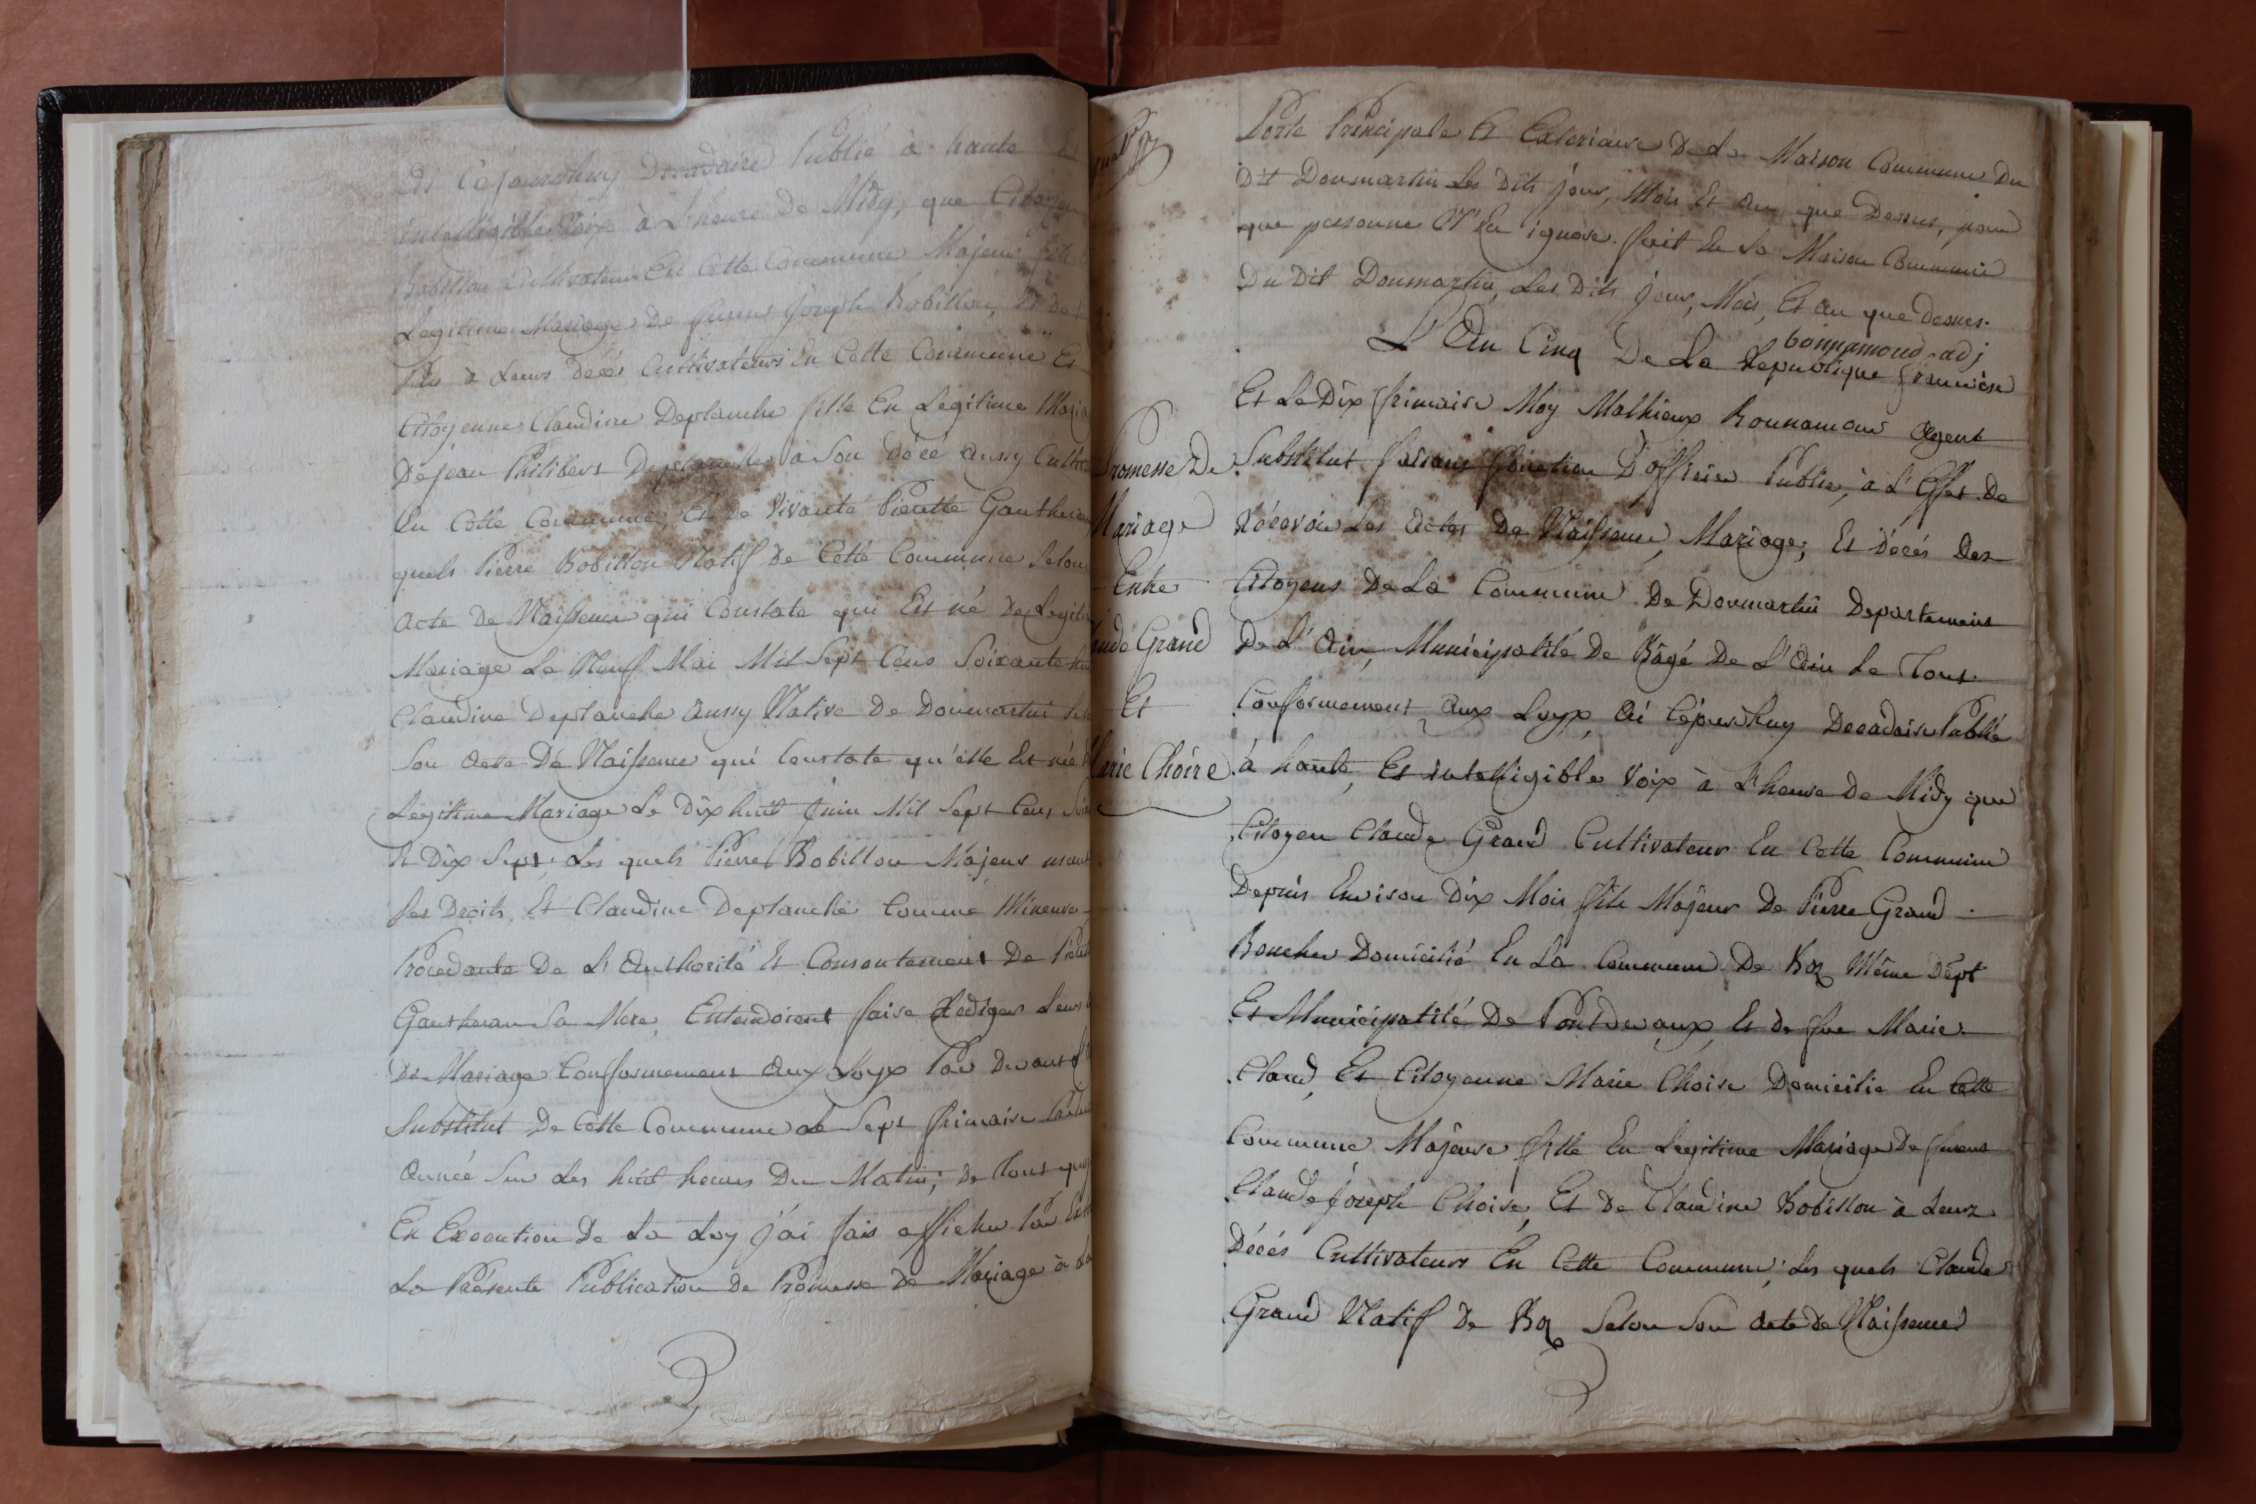 ai Cejourdhuy Decadaire Publié à haute Et
intelligible Voix à L'heure De Midy, que Citoyen
Robillon Cultivateur En Cette Commune Majeur fils
Legitime Mariage De furent Joseph Robillon, Et De
à Leurs décés Cultivateurs En Cette Commune Et
Citoyenne Claudine Deplanche fille En Legitime Maria
De Jean Philibert Deplanche à Son décé aussy Cultiv
En Cette Commune, Et De Vivante Pierrette Gautheran
quels Pierre Robillon Natif De Cette Commune Selon
acte De Naissance qui Constate qui Est né De Legiti
Mariage Le Neuf Mai Mil Sept Cens Soixante
Claudine Deplanche aussy Native De Donmartin
Son acte De Naissance qui Constate qu'elle Est née
Legitime Mariage Le Dix huit Juin Mil Sept Cens
Et Dix Sept, Les quels Pierre Robillon Majeur usant
Ses Droits, Et Claudine Deplanche Comme Mineure
Procedante De L'Authorité Et Consentement De
Gautheran Sa Mere, Entendoient faire Rediger Leur
De Mariage Conformement aux Loyx Par Devant
Substitut De Cette Commune Le Sept frimaire
année Sur Les huit heures Du Matin; De Tout quoy
En Execution De La Loy j'ai fais afficher Par
La Présente Publication De Promesse De Mariage à La
Porte Principale Et Exterieure De La Maison Commune Du
Dit Donmartin Les Dits jour, Mois Et an que Dessus, pour
que personne N'En ignore. fait En La Maison Commune
Du Dit Donmartin, Les Dits jour, Mois, Et an que dessus.
bonnamour adj
L'An Cinq De La Republique francaise
Et Le Dix frimaire Moy Mathieux Bonnamour Agent
Promesse De
Mariage
Entre
Grand
Et
Marie Choire
Substitut faisant fonction D'officier Public, à L'Effet De
Récevoir Les Actes De Naissance, Mariage, Et Décés Des
Citoyens De La Commune De Donmartin Departement
De L'Ain, Municipalité De Bâgé De L'Ain Le Tout
Conformement aux Loyx, ai Cejourdhuy Decadaire Publié
à haute, Et intelligible Voix à L'heure De Midy que
Citoyen Claude Grand Cultivateur En Cette Commune
Depuis Environ Dix Mois fils Majeur De Pierre Grand
Boucher Domicilié En La Commune De Boz Même Dépt
Et Municipalité De Pontdevaux, Et de fue Marie
Claud, Et Citoyenne Marie Choire Domicilie En Cette
Commune Majeure fille En Legitime Mariage De furent
Claude Joseph Choire, Et De Claudine Robillon à Leurs
Décés Cultivateurs En Cette Commune; Les quels Claude
Grand Natif De Boz Selon Son acte de Naissance